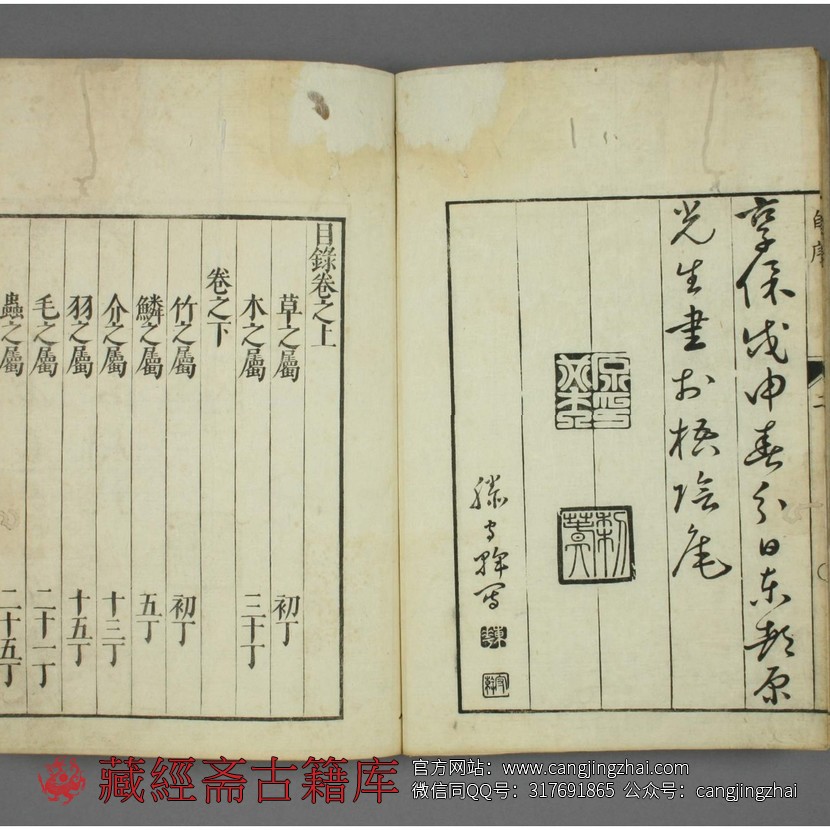 自序
二
享保戊申春分日東都原
光生書於梧陰庵
滕守輝寫
目錄卷之上
草之屬 初丁
木之屬 三十丁
卷之下
竹之屬 初丁
鱗之屬 五丁
介之屬 十三丁
羽之屬 十五丁
毛之屬 二十一丁
蟲之屬 二十五丁
藏經斋古籍库
官方网站：www.cangjingzhai.com
微信同QQ号：317691865 公众号：cangjingzhai